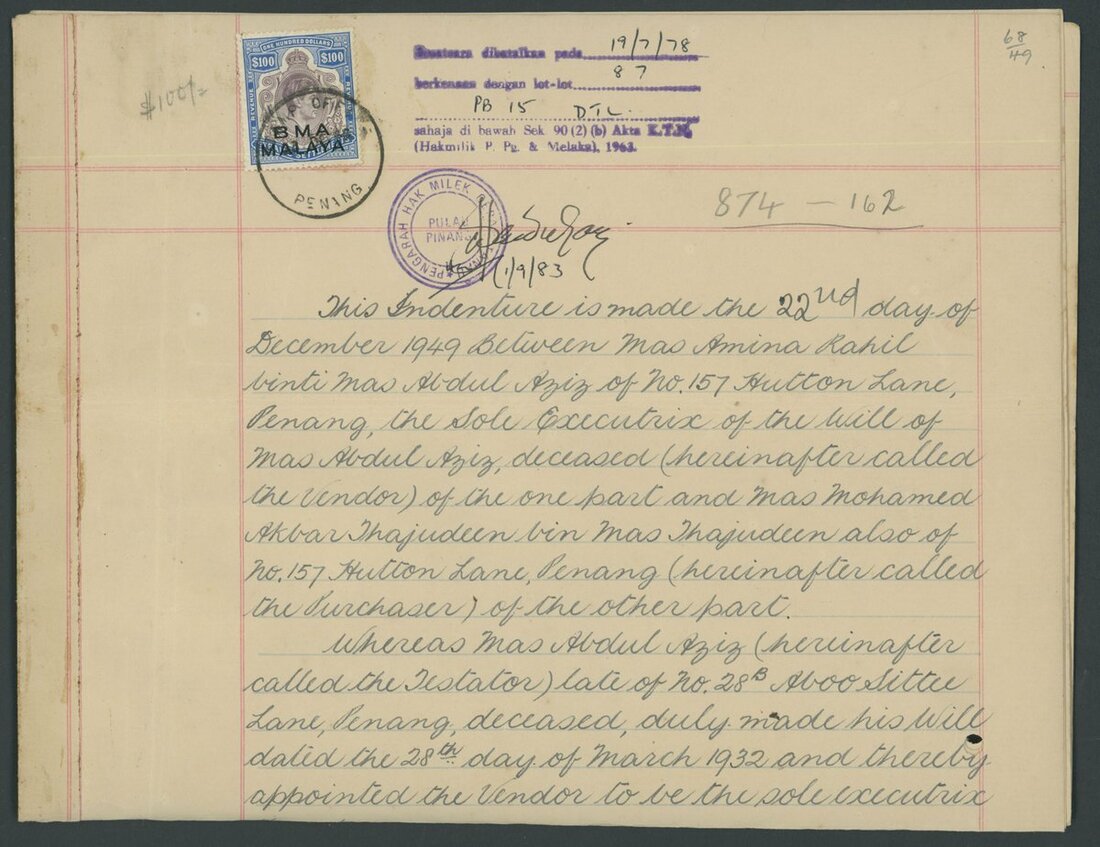 68
49
$100/-
ONE HUNDRED DOLLARS
$100 $100
BMA
MALAYA
STAMP OFFICE
PENANG
dibatalkan pada 19/7/78
berkenaan dengan lot-lot 87
PB 15 DTL
sahaja di bawah Sek. 90 (2) (b) Akta K.T.N.
(Hakmilik P. Pg. & Melaka), 1963.
PENGARAH HAK MILEK
PULAU
PINANG
1/9/83
874 - 162
This Indenture is made the 22nd day of
December 1949 Between Mas Amina Rahil
binti Mas Abdul Aziz of No. 157 Hutton Lane,
Penang, the Sole Executrix of the Will of
Mas Abdul Aziz, deceased (hereinafter called
the Vendor) of the one part and Mas Mohamed
Akbar Thajudeen bin Mas Thajudeen also of
No. 157 Hutton Lane, Penang (hereinafter called
the Purchaser) of the other part.
Whereas Mas Abdul Aziz (hereinafter
called the Testator) late of No. 28B Aboo Sittee
Lane, Penang, deceased, duly made his Will
dated the 28th day of March 1932 and thereby
appointed the Vendor to be the sole executrix